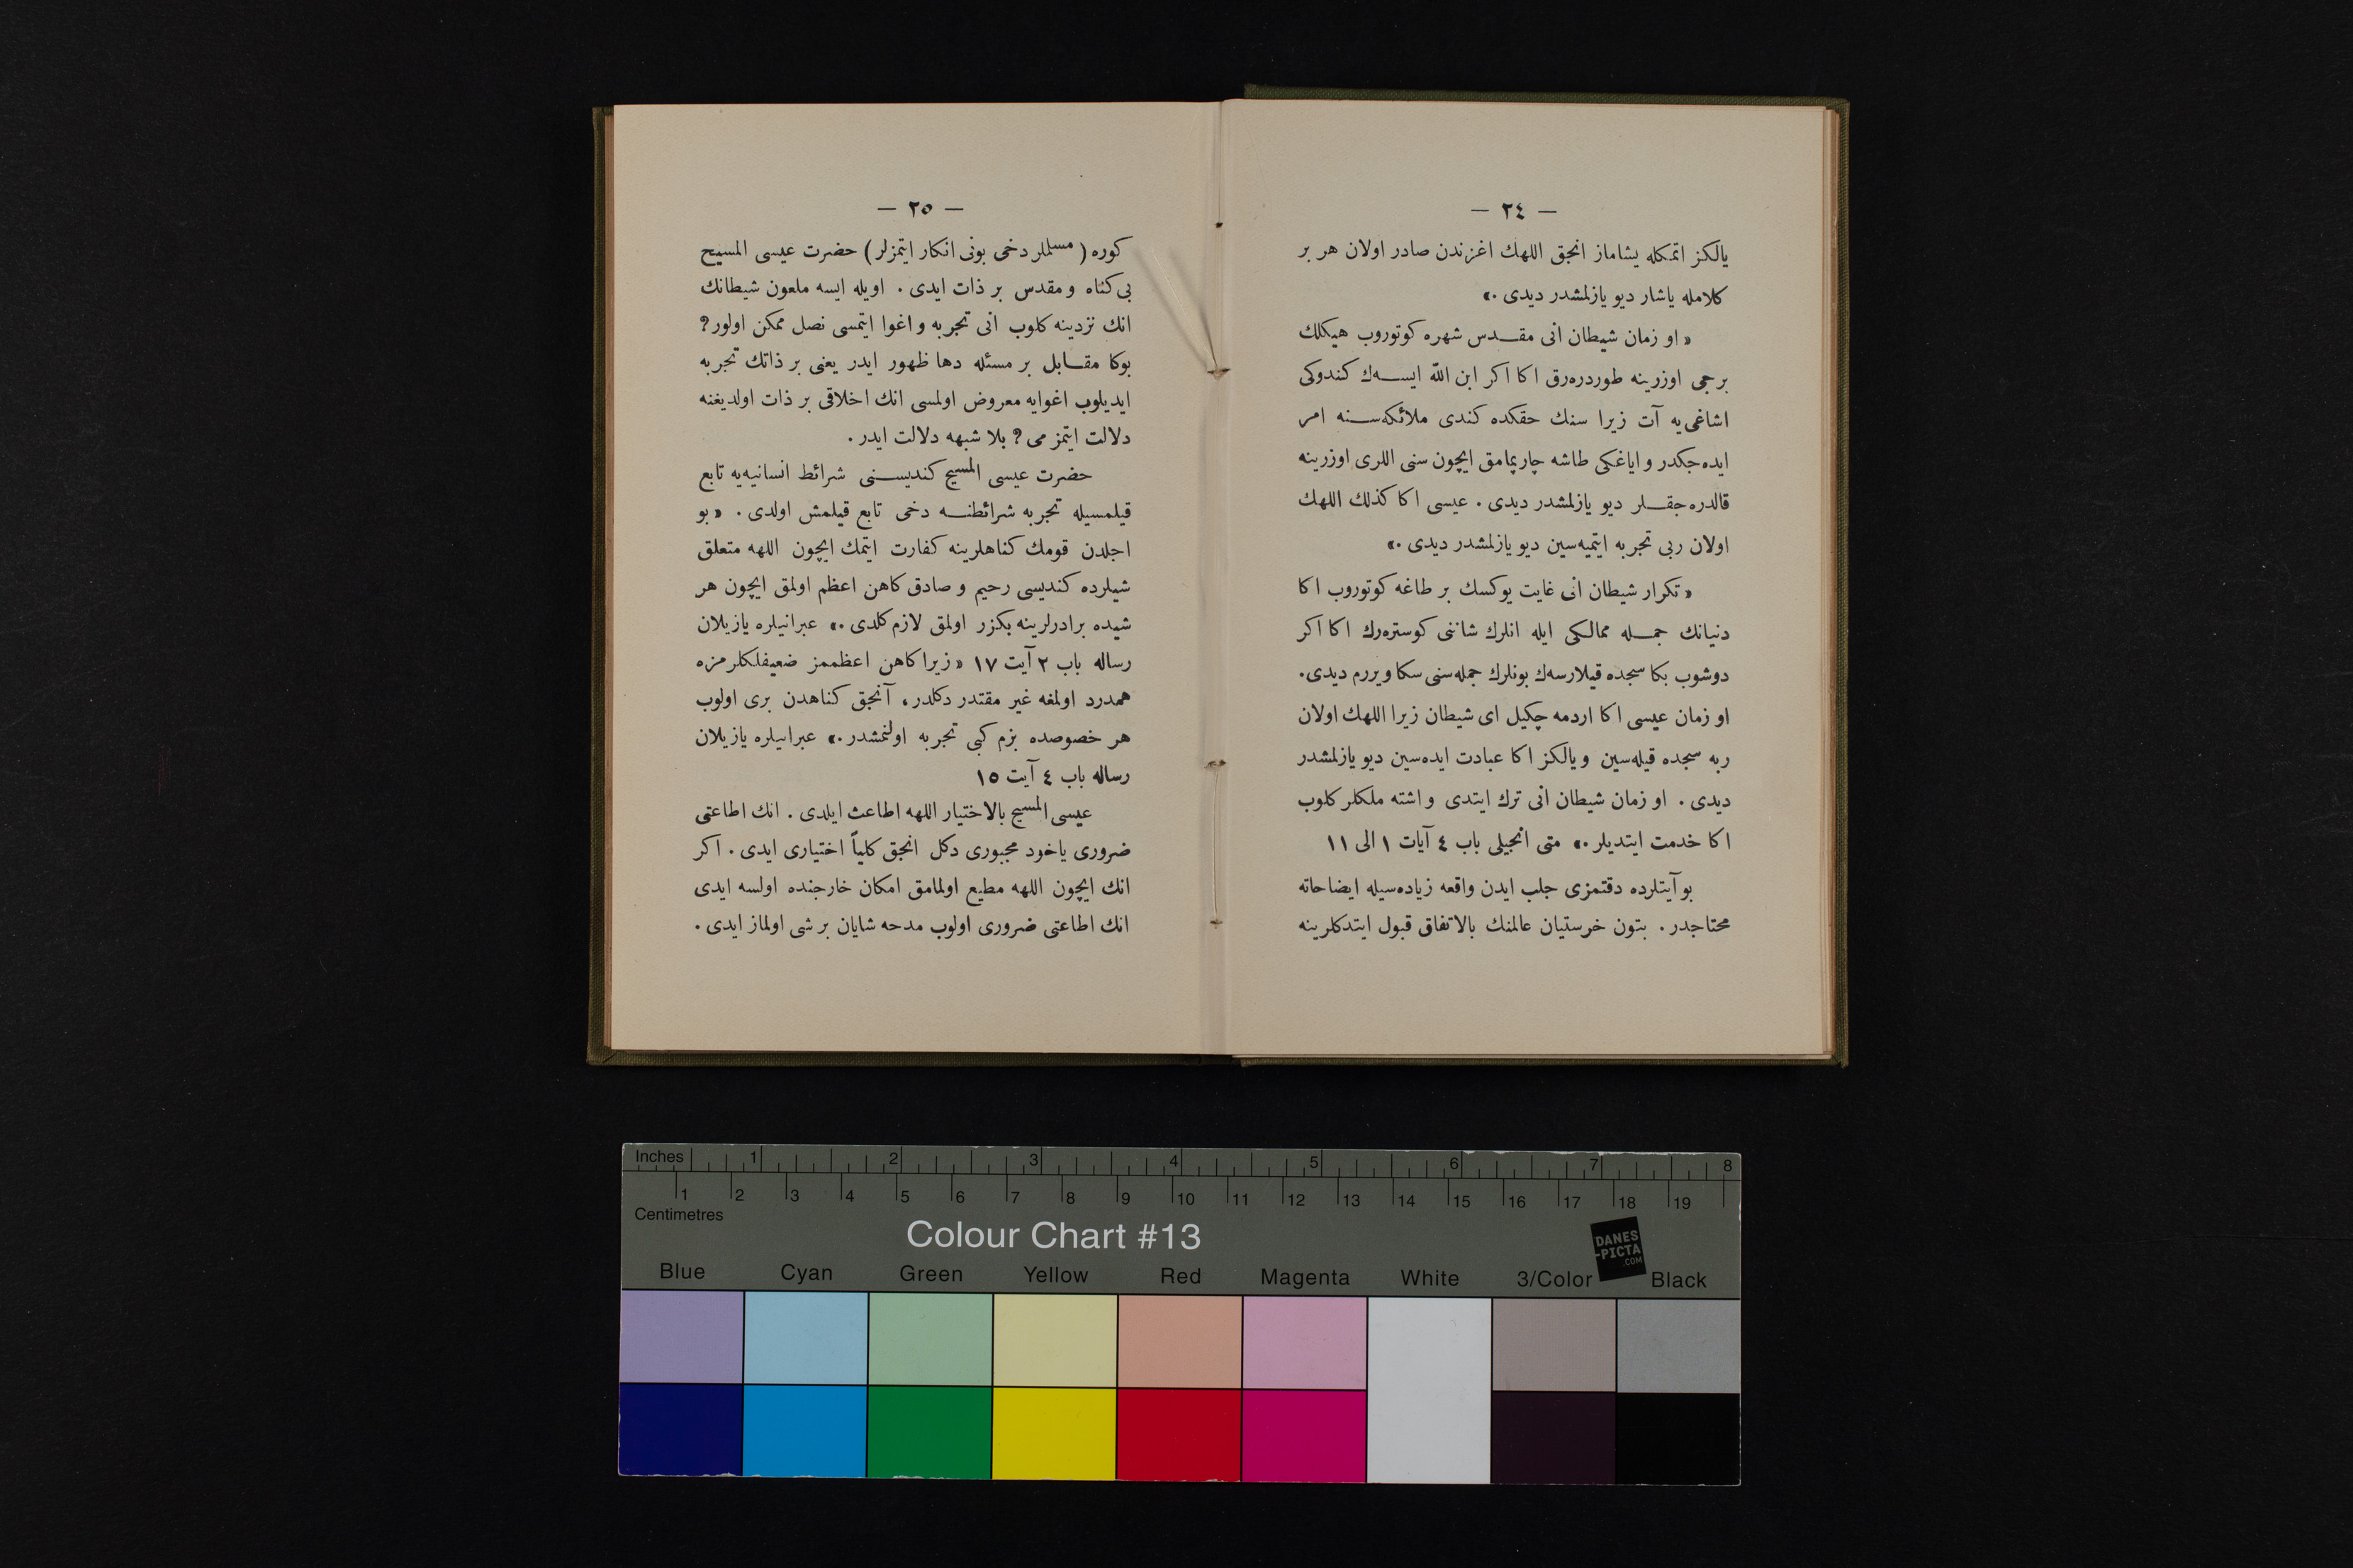 — ٢٤ —
يالكز اتمكله يشاماز انجق اللهك اغزندن صادر اولان هر بر
كلامله ياشار ديو يازلمشدر ديدى .»
« او زمان شيطان انى مقـــدس شهره كوتوروب هيكلك
برجى اوزرينه طوردره‌رق اكا اكر ابن الله ايســه‌ك كندوكى
اشاغى‌يه آت زيرا سنك حقكده كندى ملائكه‌ســنه امر
ايده‌جكدر و اياغكى طاشه چارپمامق ايچون سنى اللرى اوزرينه
قالدره‌جقــلر ديو يازلمشدر ديدى . عيسى اكا كذلك اللهك
اولان ربى تجربه ايتميه‌سين ديو يازلمشدر ديدى .»
« تكرار شيطان انى غايت يوكسك بر طاغه كوتوروب اكا
دنيانك جمــله ممالكى ايله انلرك شاننى كوستره‌رك اكا اكر
دوشوب بكا سجده قيلارسه‌ك بونلرك جمله‌سنى سكا ويررم ديدى.
او زمان عيسى اكا اردمه چكيل اى شيطان زيرا اللهك اولان
ربه سجده قيله‌سين و يالكز اكا عبادت ايده‌سين ديو يازلمشدر
ديدى . او زمان شيطان انى ترك ايتدى و اشته ملكلر كلوب
اكا خدمت ايتديلر .» متى انجيلى باب ٤ آيات ١ الى ١١
بو آيتلرده دقتمزى جلب ايدن واقعه زياده‌سيله ايضاحاته
محتاجدر . بتون خرستيان عالمنك بالاتفاق قبول ايتدكلرينه
— ٢٥ —
كوره ( مسلملر دخى بونى انكار ايتمزلر ) حضرت عيسى المسيح
بى كناه و مقدس بر ذات ايدى . اويله ايسه ملعون شيطانك
انك نزدينه كلوب انى تجربه و اغوا ايتمسى نصل ممكن اولور؟
بوكا مقــابل بر مسئله دها ظهور ايدر يعنى بر ذاتك تجربه
ايديلوب اغوايه معروض اولمسى انك اخلاقى بر ذات اولديغنه
دلالت ايتمز مى؟ بلا شبهه دلالت ايدر .
حضرت عيسى المسيح كنديســنى شرائط انسانيه‌يه تابع
قيلمسيله تجربه شرائطنــه دخى تابع قيلمش اولدى . « بو
اجلدن قومك كناهلرينه كفارت ايتمك ايچون اللهه متعلق
شيلرده كنديسى رحيم و صادق كاهن اعظم اولمق ايچون هر
شيده برادرلرينه بكزر اولمق لازم كلدى .» عبرانيلره يازيلان
رساله باب ٢ آيت ١٧ « زيرا كاهن اعظممز ضعيفلكلرمزه
همدرد اولمغه غير مقتدر دكلدر، آنجق كناهدن برى اولوب
هر خصوصده بزم كبى تجربه اولنمشدر .» عبرانيلره يازيلان
رساله باب ٤ آيت ١٥
عيسى المسيح بالاختيار اللهه اطاعت ايلدى . انك اطاعتى
ضرورى ياخود مجبورى دكل انجق كلياً اختيارى ايدى . اكر
انك ايچون اللهه مطيع اولمامق امكان خارجنده اولسه ايدى
انك اطاعتى ضرورى اولوب مدحه شايان بر شى اولماز ايدى .
Inches 1 2 3 4 5 6 7 8
1 2 3 4 5 6 7 8 9 10 11 12 13 14 15 16 17 18 19
Centimetres
Colour Chart #13
DANES
-PICTA
.COM
Blue Cyan Green Yellow Red Magenta White 3/Color Black